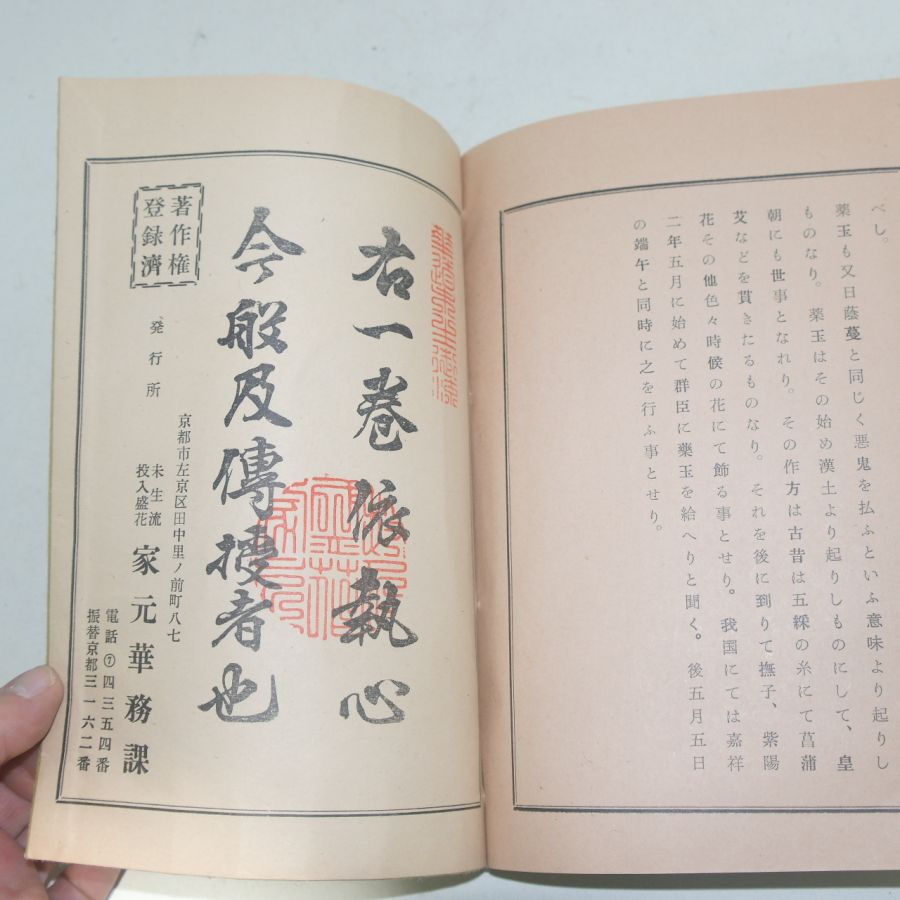 べし。
薬玉も又日蔭蔓と同じく悪鬼を払ふといふ意味より起りし
ものなり。薬玉はその始め漢土より起りしものにして、皇
朝にも世事となれり。その作方は古昔は五綵の糸にて菖蒲
艾などを貫きたるものなり。それを後に到りて撫子、紫陽
花その他色々時候の花にて飾る事とせり。我国にては嘉祥
二年五月に始めて群臣に藥玉を給へりと聞く。後五月五日
の端午と同時に之を行ふ事とせり。
右一巻依執心
今般及傳授者也
著作権
登録濟
発行所
京都市左京区田中里ノ前町八七
未生流
投入盛花
家元華務課
電話⑦四三五四番
振替京都三一六二番